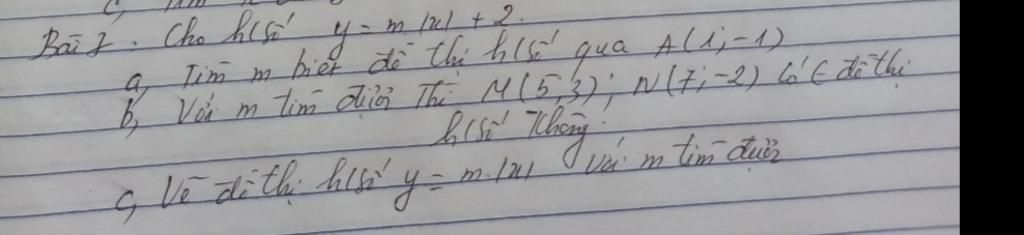 Bài 7: Cho h/số y = m.|x| + 2.
a, Tìm m biết đồ thị h/số qua A(1;-1)
b, Với m tìm được Thì M(5;3); N(7;-2) Có ∈ đồ thị
h/số không.
c, Vẽ đồ thị h/số y = m.|x| với m tìm được